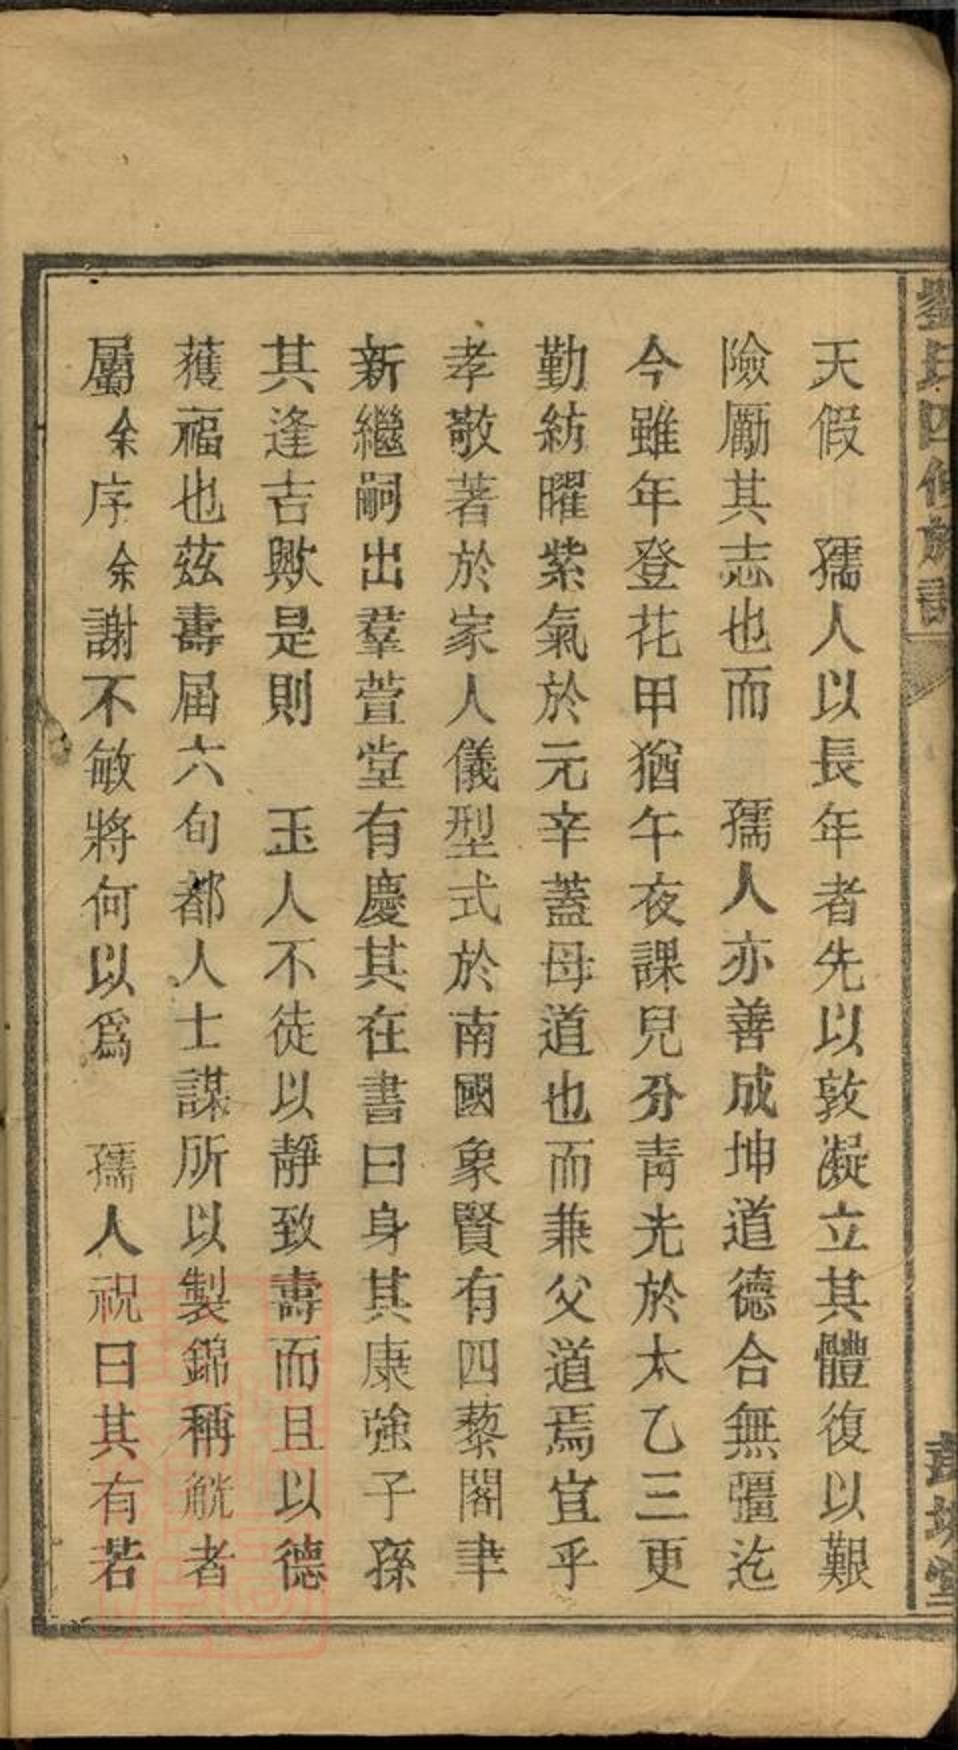 劉氏四修族譜
天假 孺人以長年者先以敦凝立其體復以艱
險勵其志也而 孺人亦善成坤道德合無疆迄
今雖年登花甲猶午夜課兒分青光於太乙三更
勤紡曜紫氣於元辛蓋母道也而兼父道焉宜乎
孝敬著於家人儀型式於南國象賢有四藜閣聿
新繼嗣出羣萱堂有慶其在書曰身其康強子孫
其逢吉歟是則 玉人不徒以靜致壽而且以德
獲福也茲壽屆六旬都人士謀所以製錦稱觥者
屬余序余謝不敏將何以爲 孺人祝曰其有若